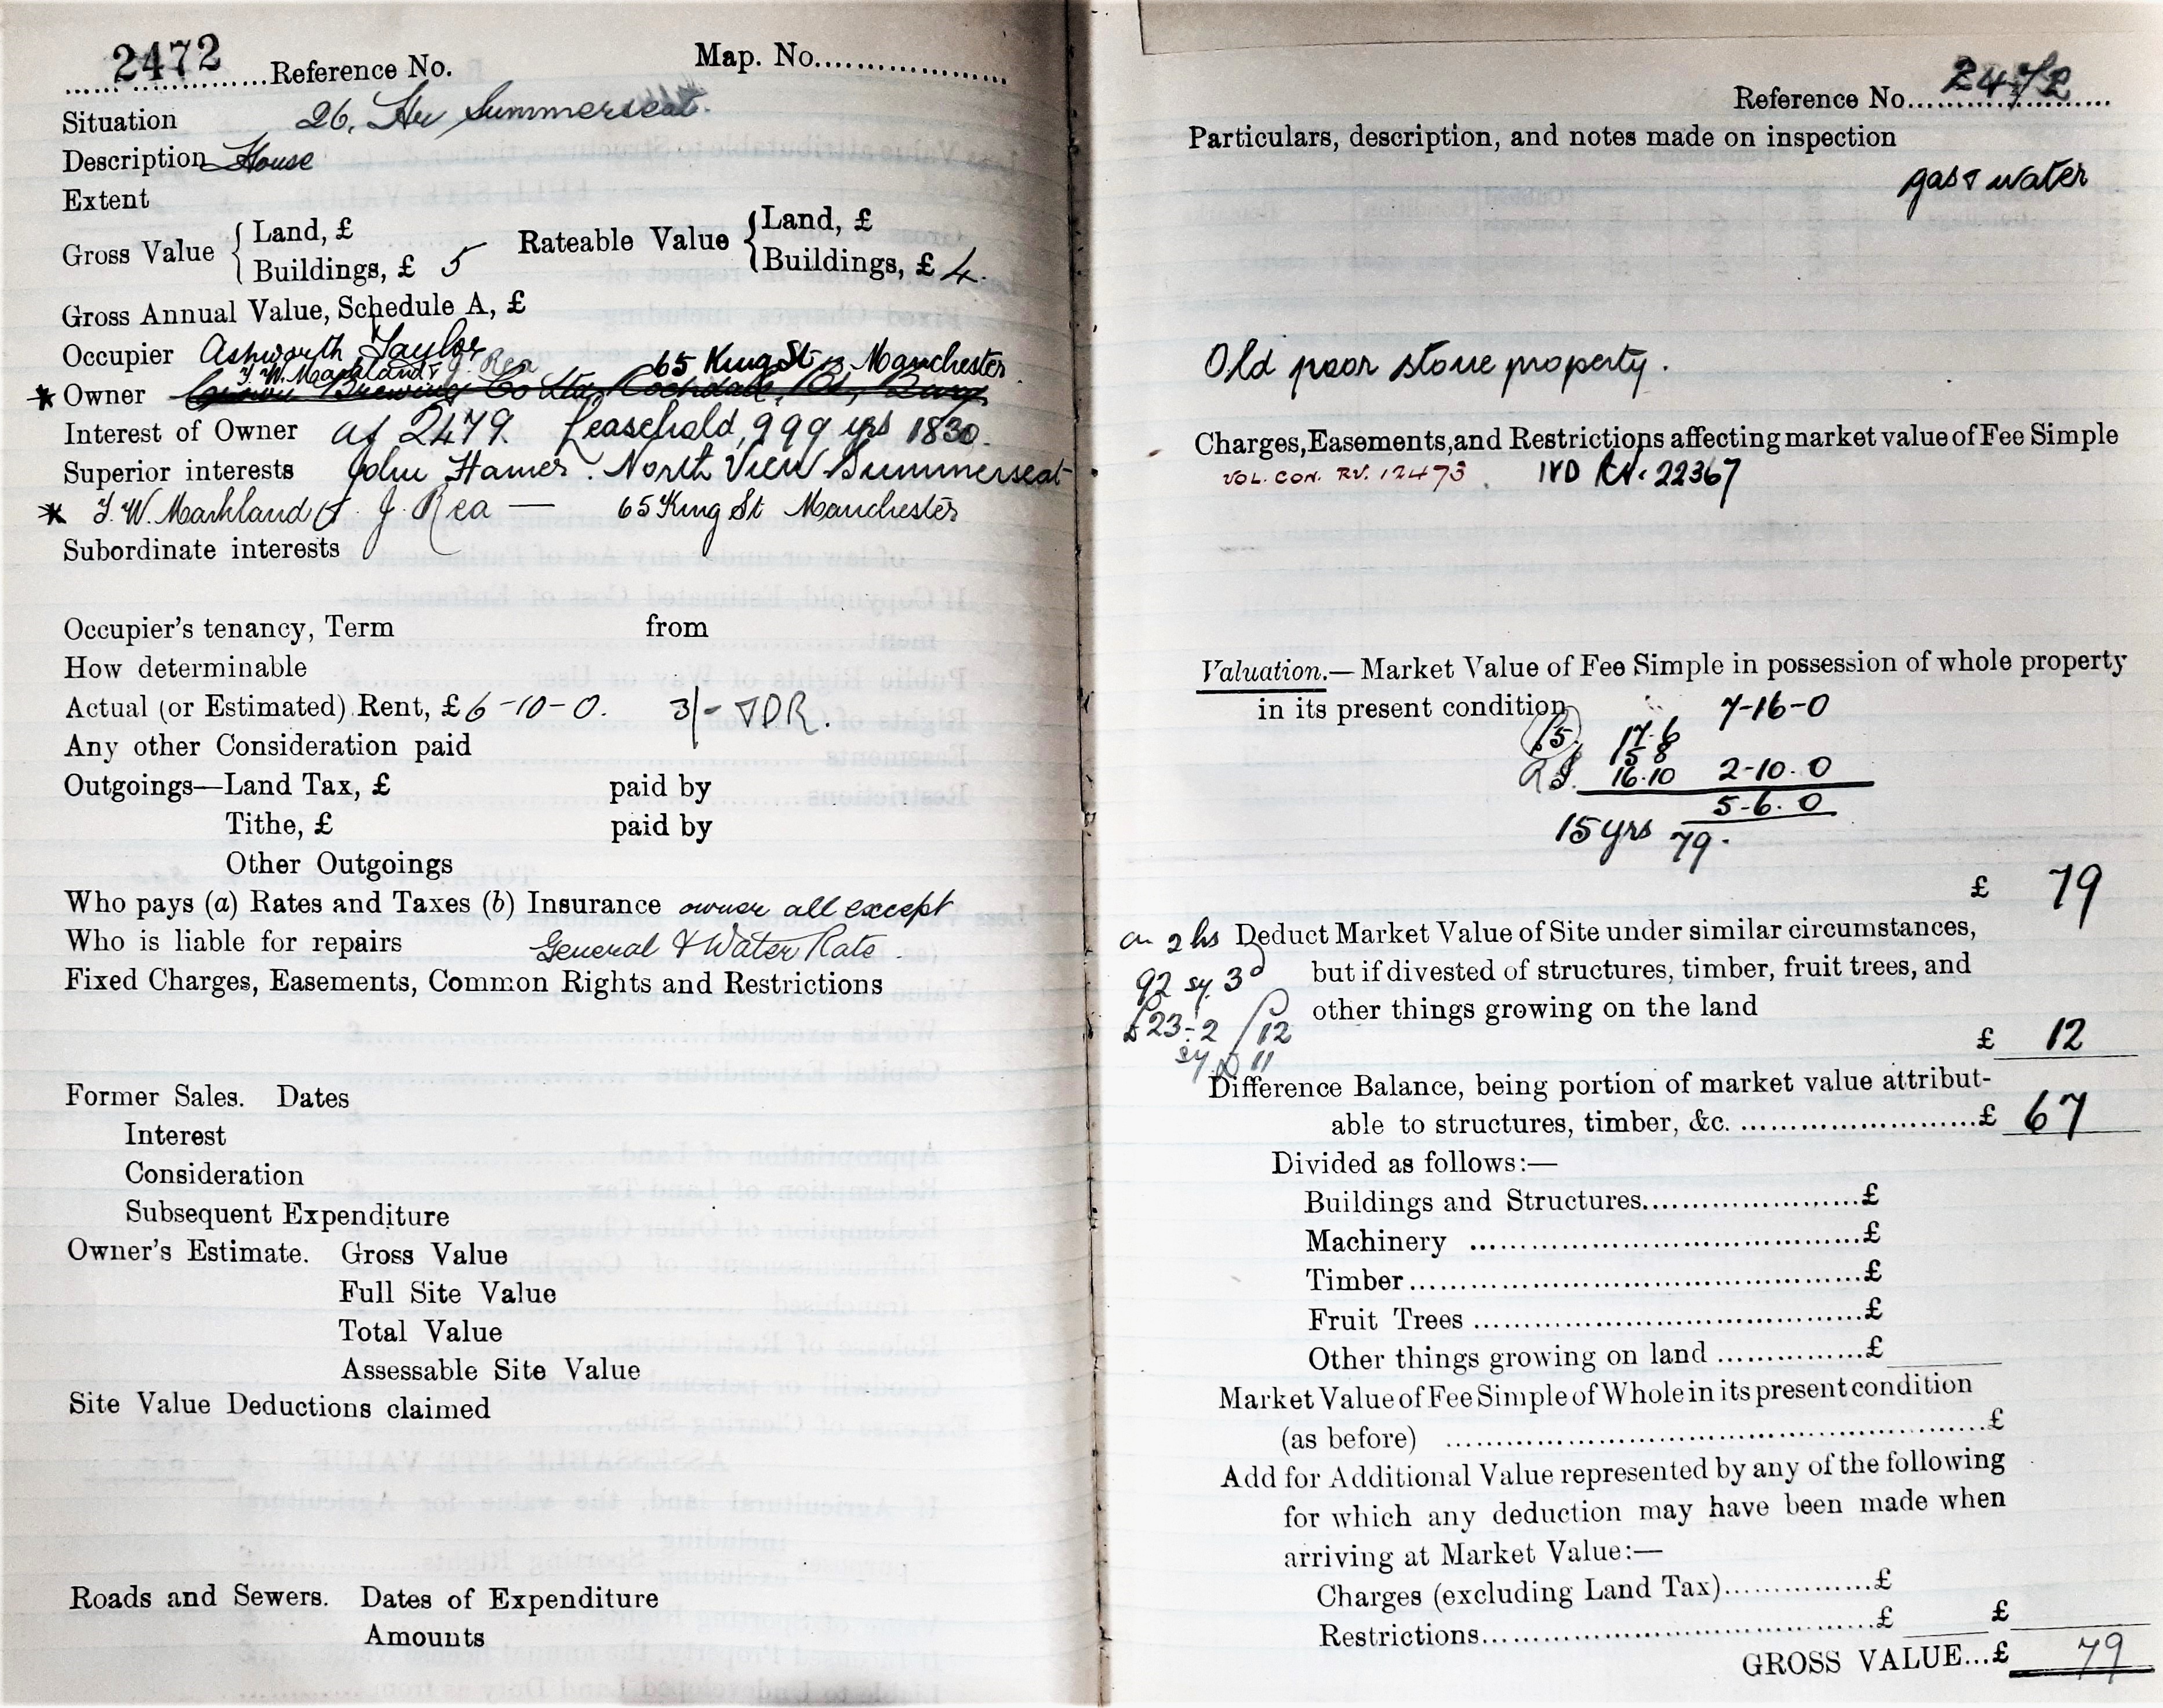 2472 Reference No. Map. No.
Situation 26, Summerseat.
Description House
Extent
Gross Value { Land, £ Rateable Value { Land, £
Buildings, £ 5 Buildings, £ 4.
Gross Annual Value, Schedule A, £
Occupier Ashworth Taylor
J. W. Markland & J. Rea 65 King St, Manchester
* Owner Crown Brewing Co Ltd, Rochdale Rd, Bury
Interest of Owner of 2479. Leasehold, 999 yrs 1830.
Superior interests John Hamer. North View Summerseat
* J. W. Markland & J. Rea — 65 King St Manchester
Subordinate interests
Occupier's tenancy, Term from
How determinable
Actual (or Estimated) Rent, £ 6-10-0. 3/- TDR.
Any other Consideration paid
Outgoings—Land Tax, £ paid by
Tithe, £ paid by
Other Outgoings
Who pays (a) Rates and Taxes (b) Insurance owner all except
Who is liable for repairs General & Water Rate.
Fixed Charges, Easements, Common Rights and Restrictions
Former Sales. Dates
Interest
Consideration
Subsequent Expenditure
Owner's Estimate. Gross Value
Full Site Value
Total Value
Assessable Site Value
Site Value Deductions claimed
Roads and Sewers. Dates of Expenditure
Amounts
Reference No. 2472
Particulars, description, and notes made on inspection
gas & water
Old poor stone property.
Charges, Easements, and Restrictions affecting market value of Fee Simple
VOL. CON. RV. 12473. IVD RV. 22367
Valuation.— Market Value of Fee Simple in possession of whole property
in its present condition
7-16-0
15. 17.6
15 8
16.10 2-10.0
5-6.0
15 yrs 79.
£ 79
on 2 hs Deduct Market Value of Site under similar circumstances,
92 sy. 3d but if divested of structures, timber, fruit trees, and
£23-2 / 12 other things growing on the land
sy. 11
£ 12
Difference Balance, being portion of market value attribut-
able to structures, timber, &c. £ 67
Divided as follows:—
Buildings and Structures £
Machinery £
Timber £
Fruit Trees £
Other things growing on land £
Market Value of Fee Simple of Whole in its present condition
(as before) £
Add for Additional Value represented by any of the following
for which any deduction may have been made when
arriving at Market Value:—
Charges (excluding Land Tax) £
Restrictions £ £
GROSS VALUE...£ 79